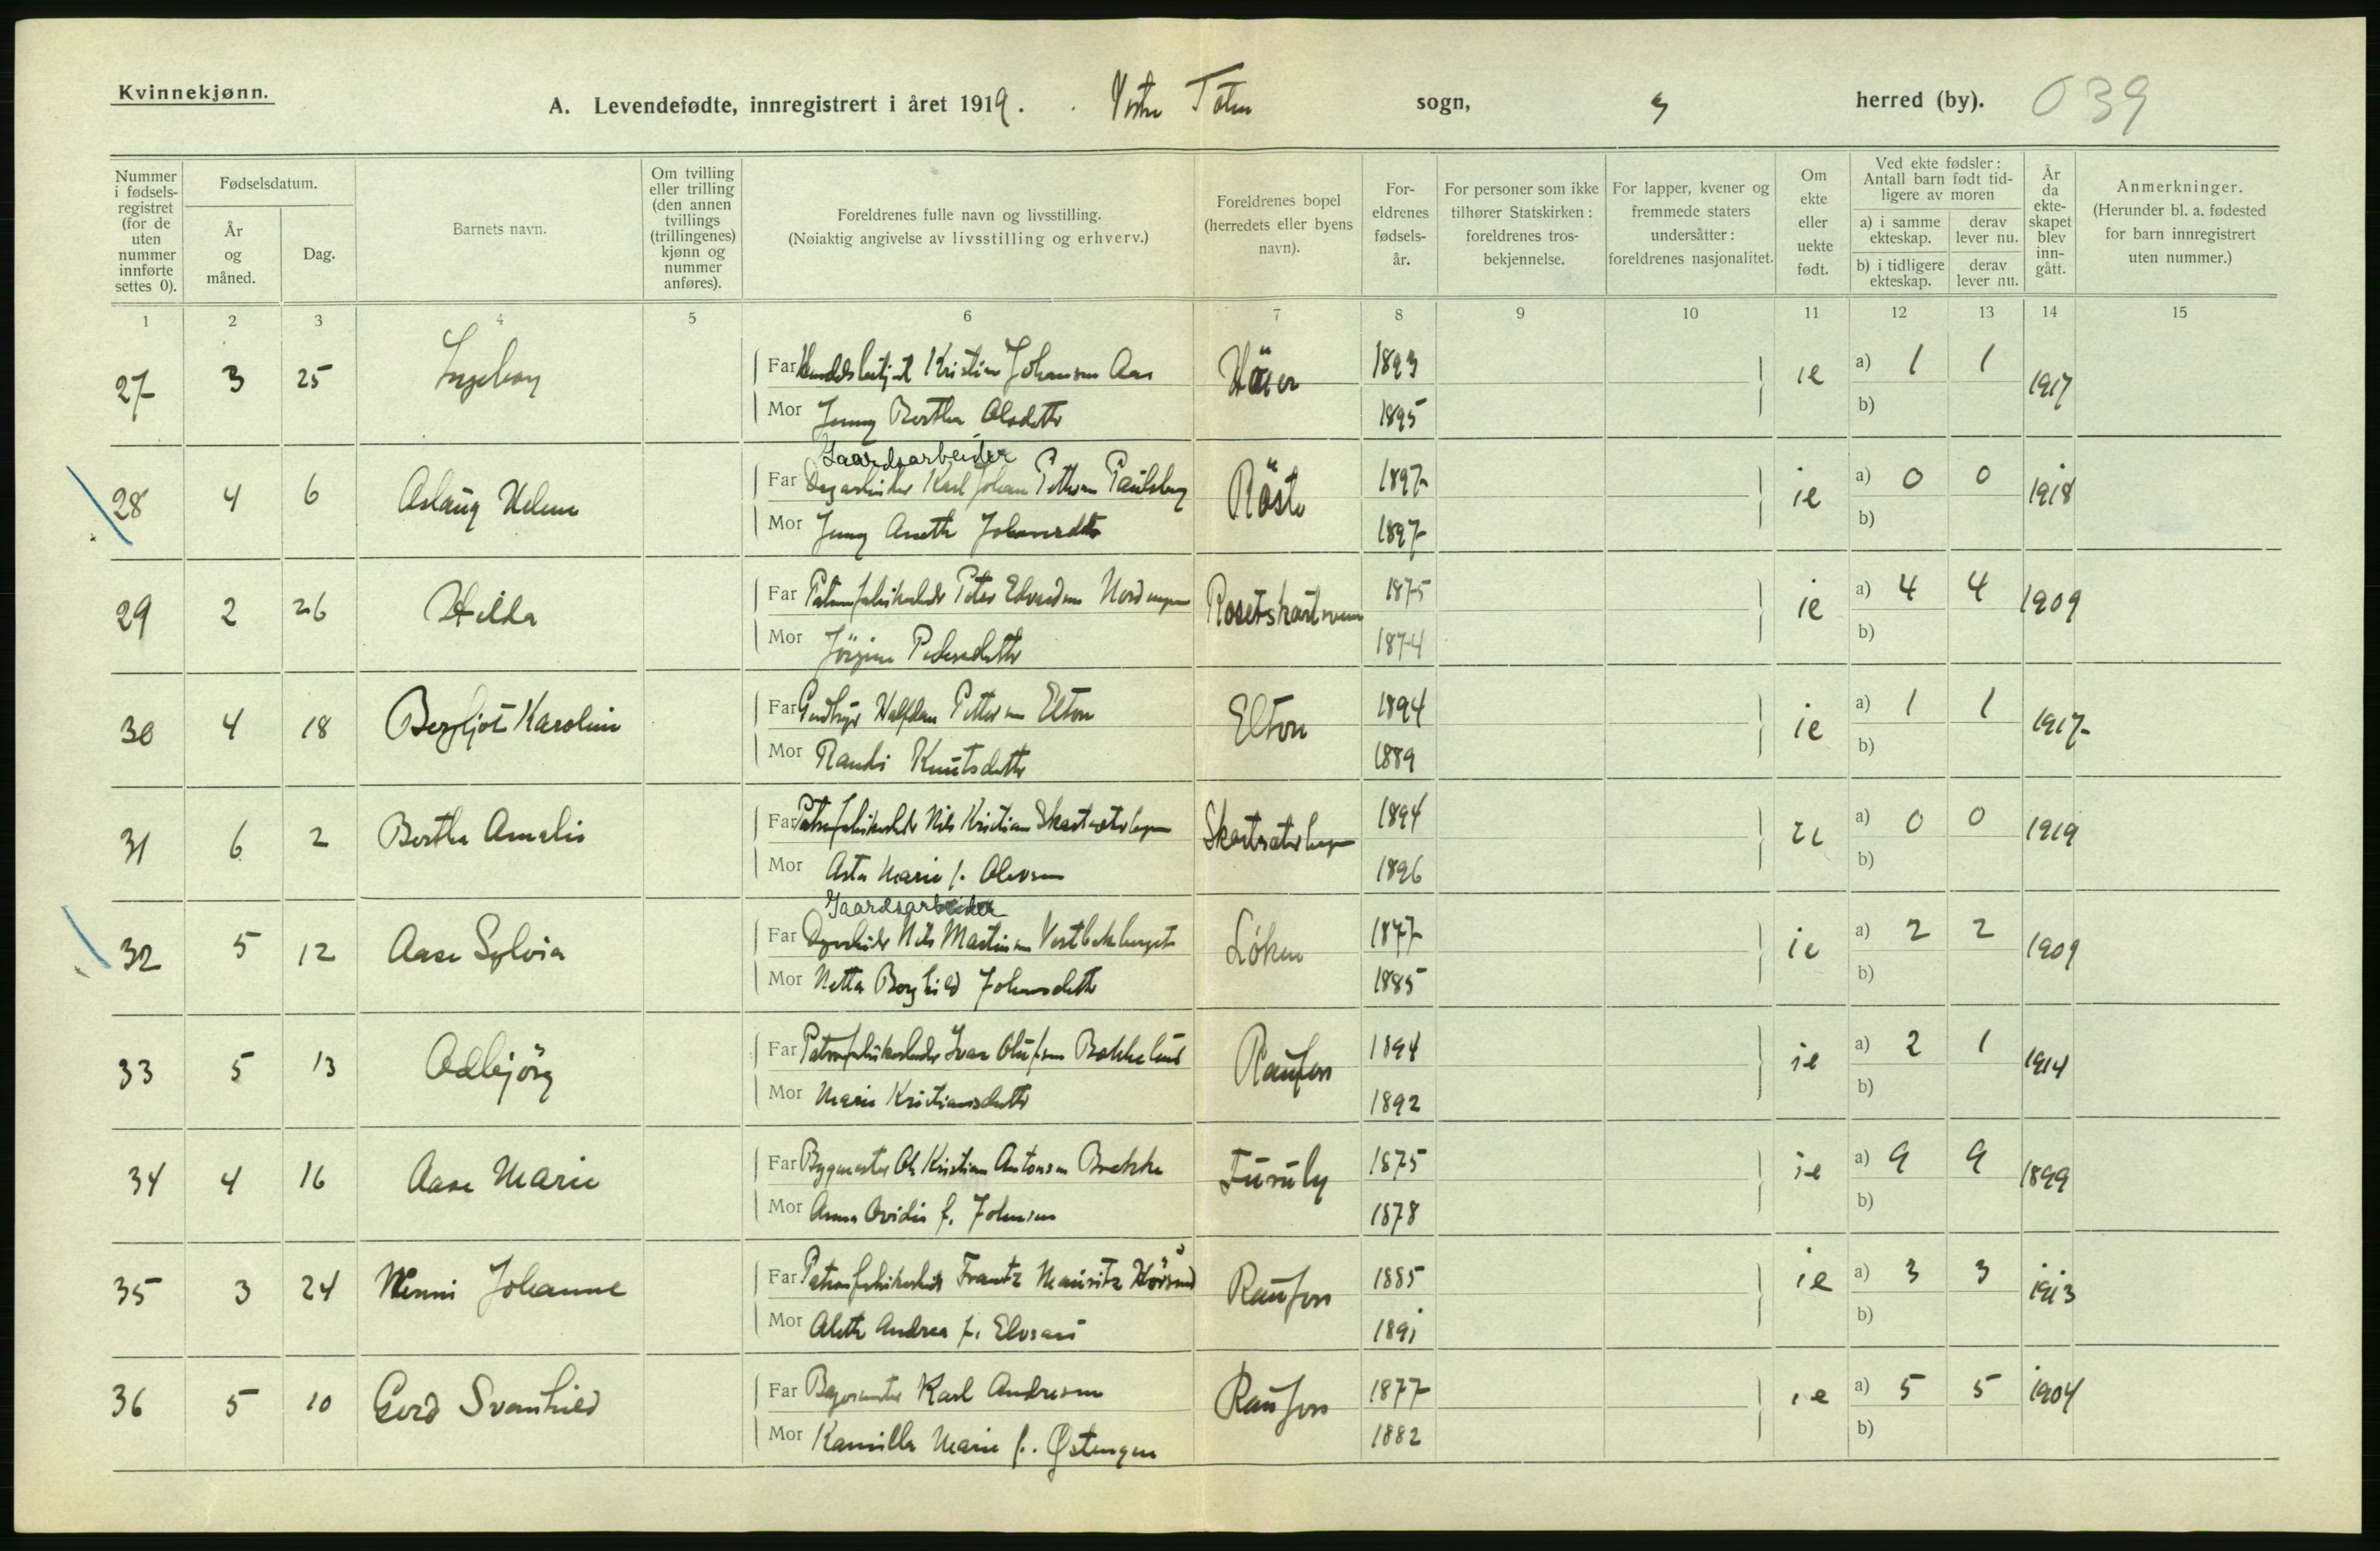 Kvinnekjønn.
A. Levendefødte, innregistrert i året 1919. Vestre Toten sogn, herred (by). 039
Nummer i fødselsregistret (for de uten nummer innførte settes 0).
Fødselsdatum.
År og måned.
Dag.
Barnets navn.
Om tvilling eller trilling (den annen tvillings (trillingenes) kjønn og nummer anføres).
Foreldrenes fulle navn og livsstilling.
(Nøiaktig angivelse av livsstilling og erhverv.)
Foreldrenes bopel (herredets eller byens navn).
Foreldrenes fødselsår.
For personer som ikke tilhører Statskirken: foreldrenes trosbekjennelse.
For lapper, kvener og fremmede staters undersåtter: foreldrenes nasjonalitet.
Om ekte eller uekte født.
Ved ekte fødsler: Antall barn født tidligere av moren
a) i samme ekteskap.
derav lever nu.
b) i tidligere ekteskap.
derav lever nu.
År da ekteskapet blev inngått.
Anmerkninger.
(Herunder bl. a. fødested for barn innregistrert uten nummer.)
1 2 3 4 5 6 7 8 9 10 11 12 13 14 15
27 3 25 Ingeborg Far Kristian Johansen Aas 1893 ie a) 1 1 1917
Mor Jenny Berthe Olsdttr 1895 b)
Gaardsarbeider
28 4 6 Aslaug Helene Far Dagarbeider Karl Johan Pettersen Paulsberg Røste 1897 ie a) 0 0 1918
Mor Jenny Anette Johansdttr 1897 b)
29 2 26 Hilda Far Patronfabrikarbeider Peter Edvardsen Nordengen 1875 ie a) 4 4 1909
Mor Jörgine Pedersdattr 1874 b)
30 4 18 Bergljot Karoline Far Halfdan Pettersen Elton Elton 1894 ie a) 1 1 1917
Mor Randi Knutsdattr 1889 b)
31 6 2 Berthe Amalie Far Patronfabrikarbeider Nils Kristian 1894 a) 0 0 1919
Mor Asta Marie f. Olsen 1896 b)
Gaardsarbeider
32 5 12 Aase Sylvia Far Dagarbeider Nils Martinsen Løken 1877 ie a) 2 2 1909
Mor Netta Borghild Johansdttr 1885 b)
33 5 13 Odbjörg Far Patronfabrikarbeider Ivar Olufsen Bakkelund Raufoss 1894 ie a) 2 1 1914
Mor Marie Kristiansdattr 1892 b)
34 4 16 Aase Marie Far Bygmester Ole Kristian Antonsen Brekke Furuly 1875 ie a) 9 9 1899
Mor Anna Ovidia f. Johnsen 1878 b)
35 3 24 Wenni Johanne Far Patronfabrikarbeider Frantz Mauritz Raufoss 1885 ie a) 3 3 1913
Mor Alette Andrea f. 1891 b)
36 5 10 Gerd Svanhild Far Karl Andresen Raufoss 1877 ie a) 5 5 1904
Mor Kamilla Marie f. Østengen 1882 b)